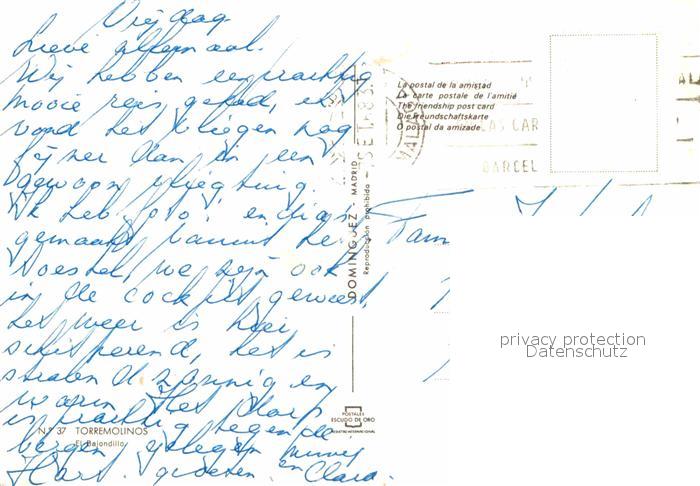 Vrijdag.
Lieve allemaal.
Wij hebben een prachtig
mooie reis gehad, ik
vond het vliegen nog
fijner dan in een
gewoon vliegtuig.
Ik heb foto's en dia's
gemaakt vanuit het
toestel, we zijn ook
in de cockpit geweest,
het weer is hier
schitterend, het is
stralend zonnig en
warm. Het dorp
is prachtig tegen de
bergen gelegen
Hart. groeten. en Clara.
Fam
La postal de la amistad
La carte postale de l'amitié
The friendship post card
Die Freundschaftskarte
O postal da amizade
MALAGA
LAS CAR
BARCEL
DOMINGUEZ - MADRID
Reproducción prohibida
POSTALES
ESCUDO DE ORO
REGISTRO INTERNACIONAL
N.º 37 TORREMOLINOS
El Bajondillo
privacy protection
Datenschutz